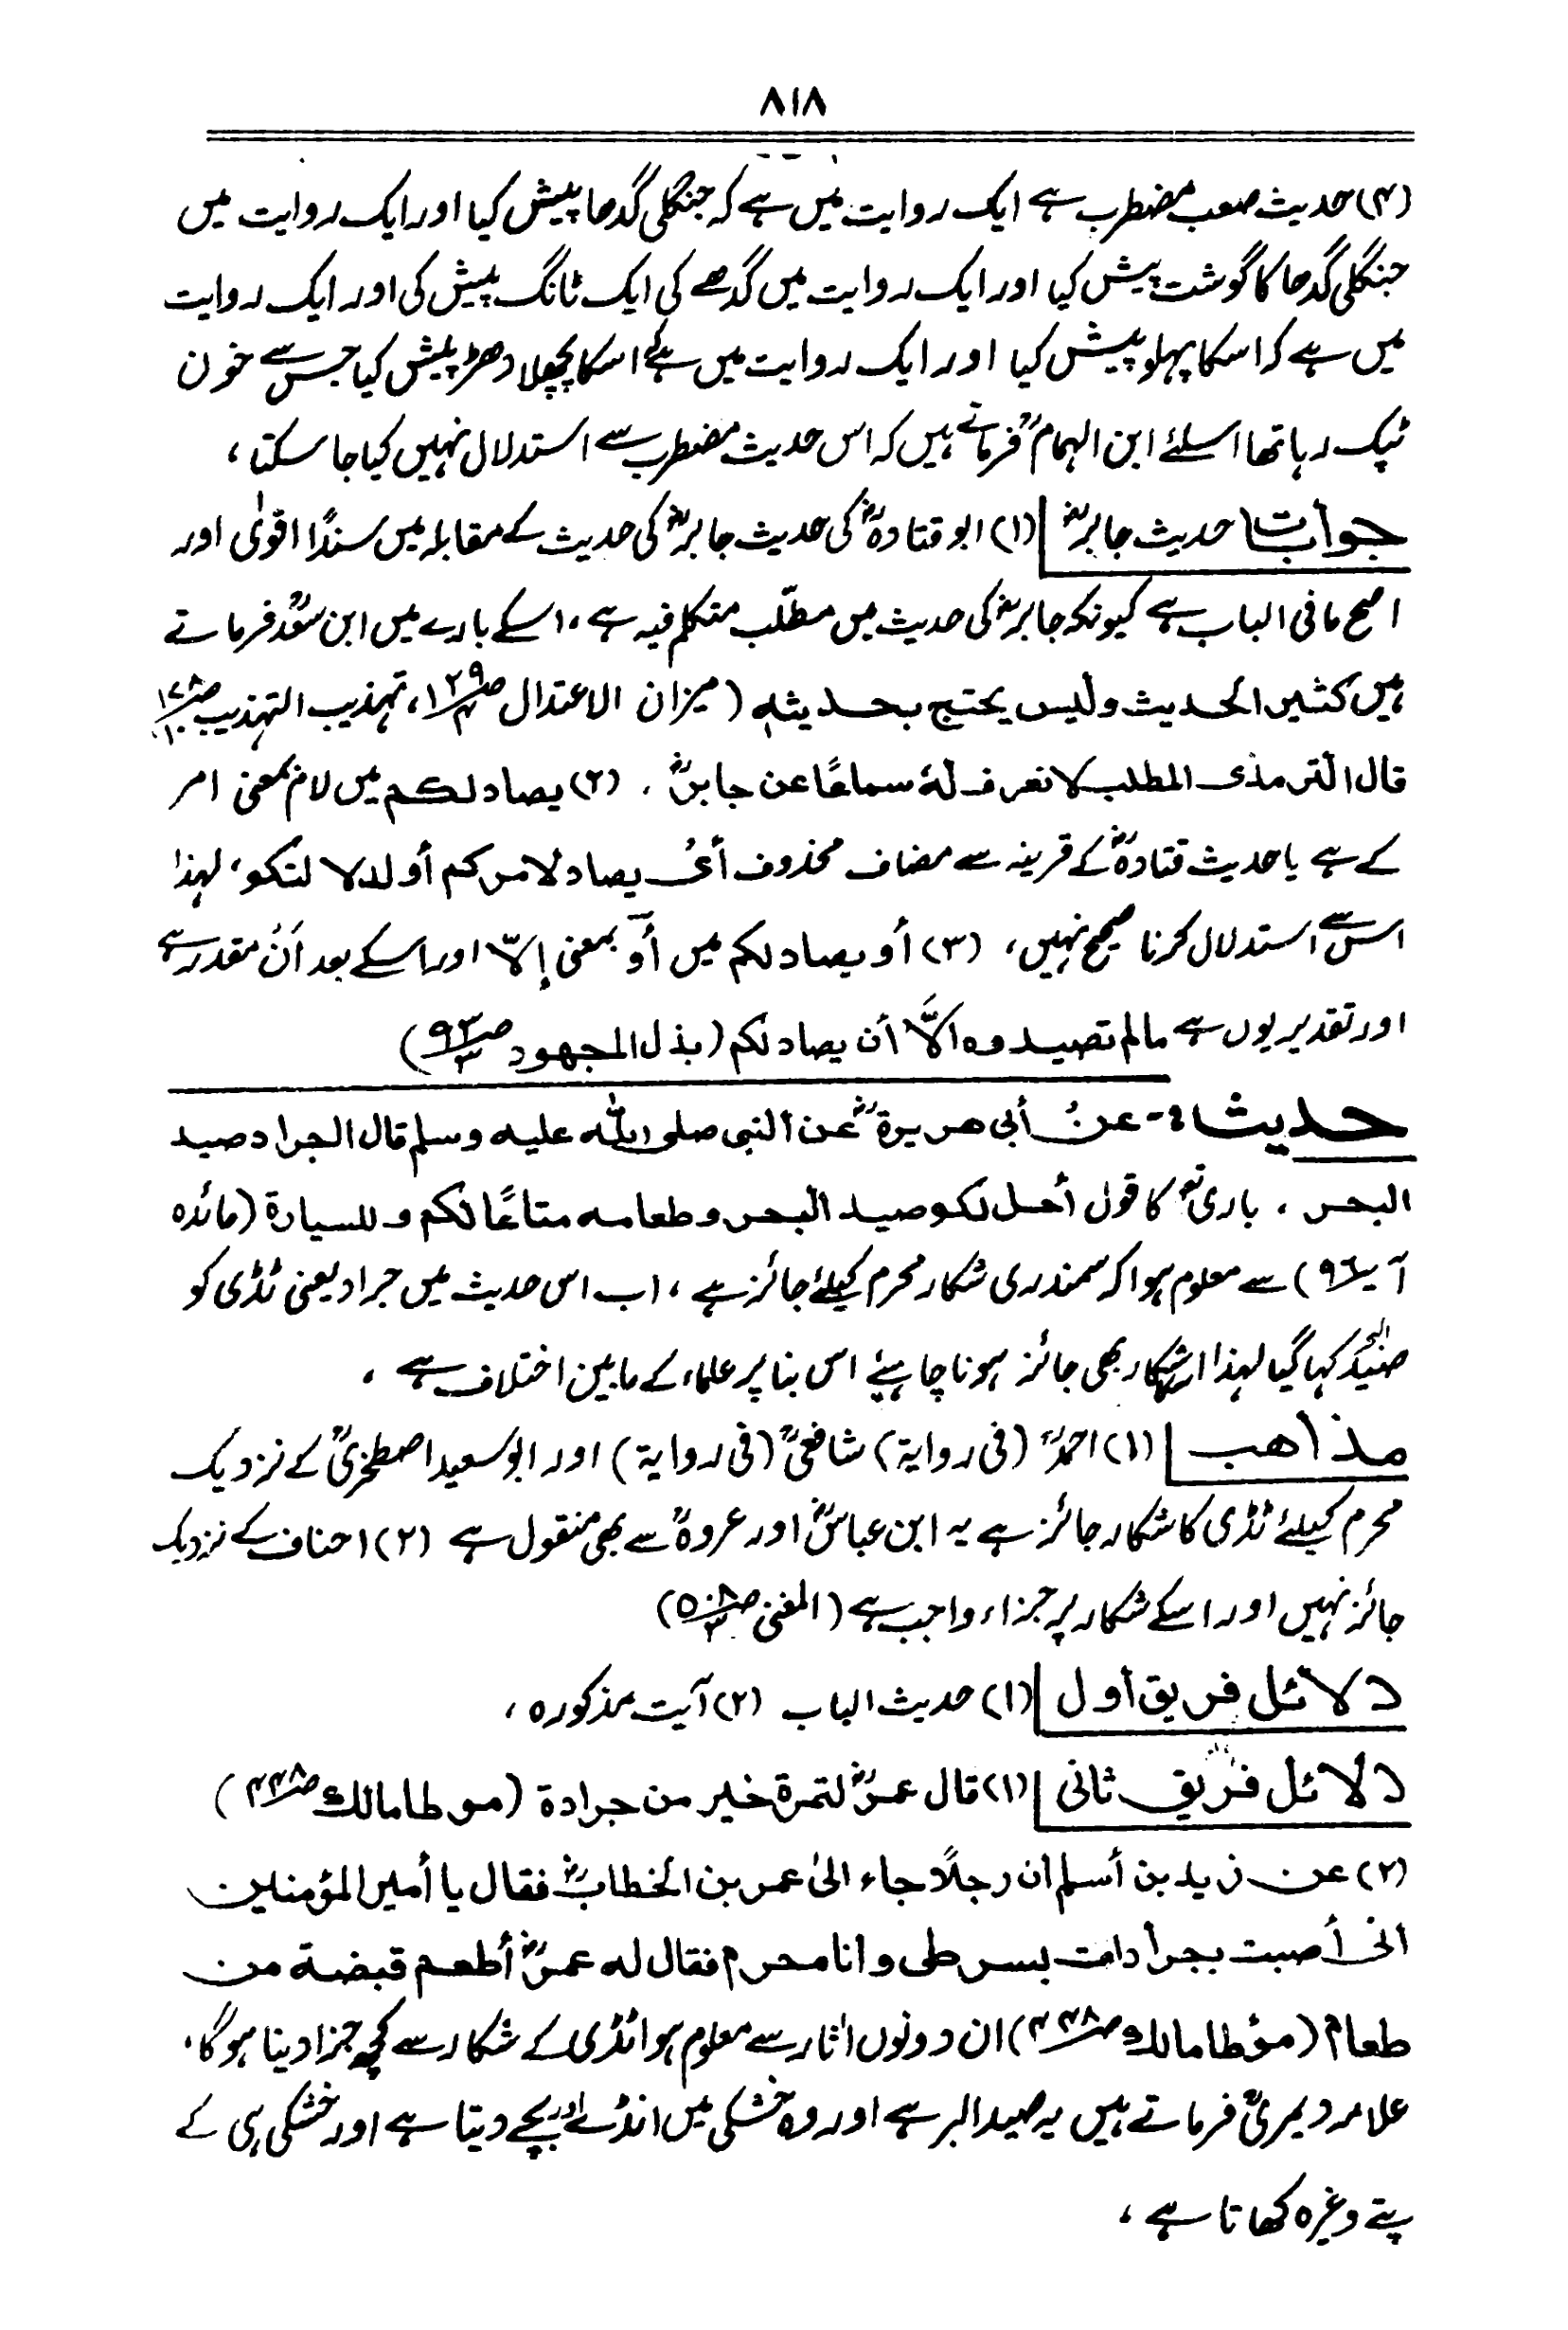 ۸۱۸
(۴) حدیث صعب مضطرب ہے ایک روایت میں ہے کہ جنگلی گدھا پیش کیا اور ایک روایت میں
جنگلی گدھا کا گوشت پیش کیا اور ایک روایت میں گدھے کی ایک ٹانگ پیش کی اور ایک روایت
میں ہے کہ اسکا پہلو پیش کیا اور ایک روایت میں ہے کہ اسکا پچھلا دھڑ پیش کیا جس سے خون
ٹپک رہا تھا اسلئے ابن الہمامؒ فرماتے ہیں کہ اس حدیث مضطرب سے استدلال نہیں کیا جا سکتا،
جوابات حدیث جابرؓ (۱) ابو قتادہؓ کی حدیث جابرؓ کی حدیث کے مقابلہ میں سندًا اقویٰ اور
اصح مافی الباب ہے کیونکہ جابرؓ کی حدیث میں مطلّب متکلم فیہ ہے، اسکے بارے میں ابن سعدؒ فرماتے
ہیں کثیر الحدیث ولیس یحتج بحدیثہ (میزان الاعتدال ص۱۲۹/۴، تہذیب التہذیب ص۱۷۸/۱۰
قال الترمذی المطلب لا نعرف لہٗ سماعًا عن جابرؓ ، (۲) یصاد لکم میں لام بمعنی امر
کے ہے یا حدیث قتادہؓ کے قرینہ سے مضاف محذوف أی یصاد لامرکم أو لدلالتکم، لہذا
اس سے استدلال کرنا صحیح نہیں، (۳) أو یصاد لکم میں أو بمعنی إلّا اور اسکے بعد أن مقدر ہے
اور تقدیر یوں ہے مالم تصیدوہ الّا أن یصاد لکم (بذل المجهود ص۹۳/۳)
حدیث :- عن أبی هریرة ؓ عن النبی صلی الله علیه وسلم قال الجراد صید
البحر ، باری تعٰ کا قول أحل لکم صید البحر وطعامه متاعًا لکم وللسیارة (مائدہ
آیہ ۹۶) سے معلوم ہوا کہ سمندری شکار محرم کیلئے جائز ہے، اب اس حدیث میں جراد یعنی ٹڈی کو
صید البحر کہا گیا لہذا اسکا شکار بھی جائز ہونا چاہیئے اس بنا پر علماء کے مابین اختلاف ہے ،
مذاهب (۱) احمدؒ (فی روایة) شافعیؒ (فی روایة) اور ابو سعید اصطخریؒ کے نزدیک
محرم کیلئے ٹڈی کا شکار جائز ہے یہ ابن عباسؓ اور عروہؒ سے بھی منقول ہے (۲) احناف کے نزدیک
جائز نہیں اور اسکے شکار پر جزاء واجب ہے (المغنی ص۵۰۸/۳)
دلائل فریق أول (۱) حدیث الباب (۲) آیت مذکورہ ،
دلائل فریق ثانی (۱) قال عمرؓ لتمرة خیر من جرادة (موطا مالك ص۴۴۸)
(۲) عن زید بن أسلم ان رجلًا جاء الیٰ عمر بن الخطابؓ فقال یا أمیر المؤمنین
انی أصبت بجرادات بسوطی وانا محرم فقال له عمرؓ أطعم قبضة من
طعام (مؤطا مالك ص۴۴۸) ان دونوں اٰثار سے معلوم ہوا ٹڈی کے شکار سے کچھ جزا دینا ہوگا،
علامہ دمیریؒ فرماتے ہیں یہ صید البر ہے اور وہ خشکی میں انڈے اور بچے دیتا ہے اور خشکی ہی کے
پتے وغیرہ کھاتا ہے ،